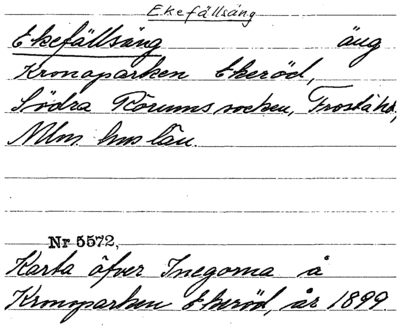 Ekefällsäng
Ekefällsäng äng
Kronoparken Ekeröd,
Södra Rörums socken, Frostahd,
Mlm hus län.
Nr 5572,
Karta öfver Inegorna å
Kronoparken Ekeröd, år 1899